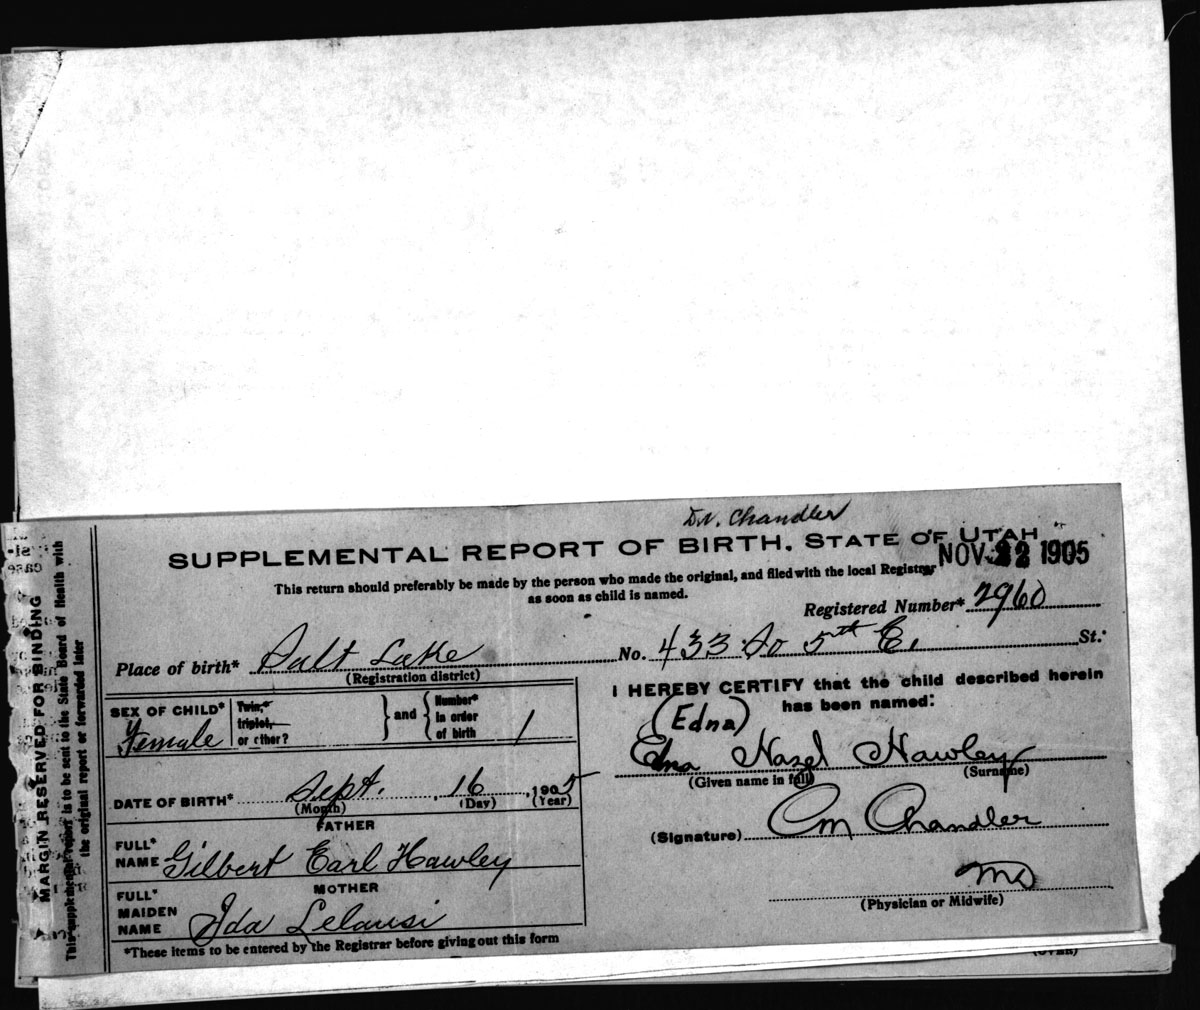 Dr. Chandler
SUPPLEMENTAL REPORT OF BIRTH. STATE OF UTAH
NOV 22 1905
This return should preferably be made by the person who made the original, and filed with the local Registrar
as soon as child is named.
Registered Number* 2960
Place of birth* Salt Lake No. 433 So 5th E. St.
(Registration district)
I HEREBY CERTIFY that the child described herein
has been named:
SEX OF CHILD* Female
Twin,*
triplet,
or other?
and
Number*
in order
of birth
1
(Edna)
Edna Hazel Hawley
(Given name in full) (Surname)
DATE OF BIRTH* Sept. 16, 1905
(Month) (Day) (Year)
(Signature) CM Chandler
MD
(Physician or Midwife)
FATHER
FULL*
NAME Gilbert Earl Hawley
MOTHER
FULL*
MAIDEN
NAME Ida
*These items to be entered by the Registrar before giving out this form
MARGIN RESERVED FOR BINDING
This supplemental report is to be sent to the State Board of Health with
the original report or forwarded later
(OVER)